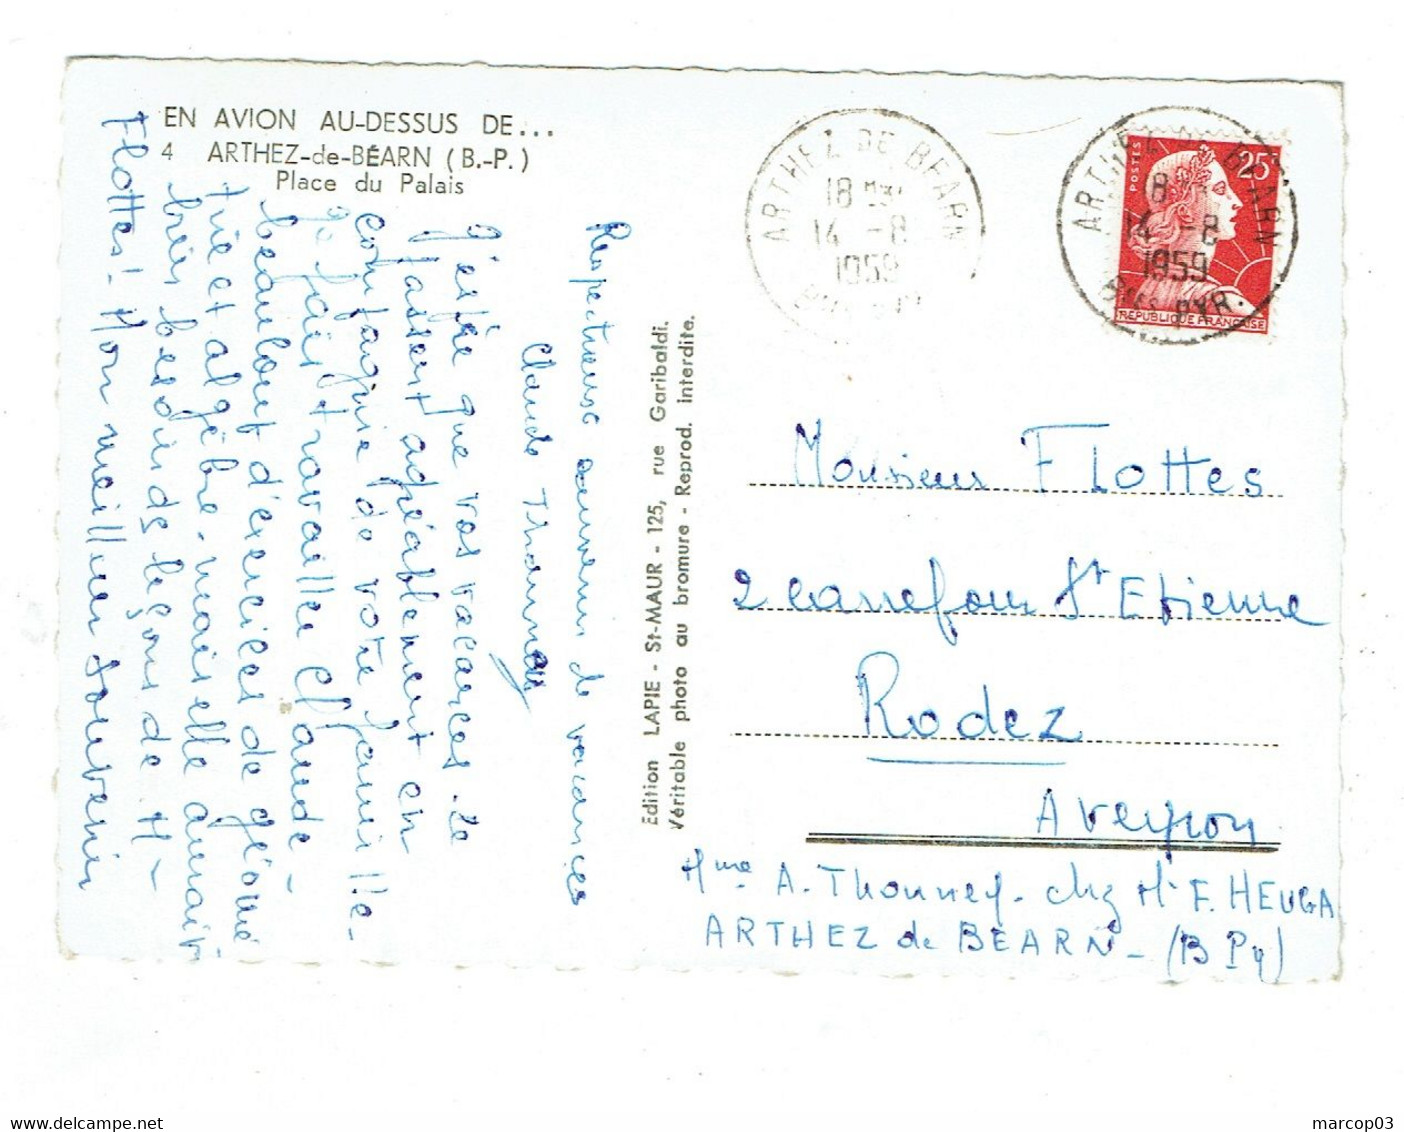 EN AVION AU-DESSUS DE...
4 ARTHEZ-de-BÉARN (B.-P.)
Place du Palais
J'espère que vos vacances se
passent agréablement en
compagnie de votre famille -
Je fais travailler Claude -
beaucoup d'exercices de géomé
trie et algèbre. mais elle aurait
très besoin de leçons de Mr
Flottes! Mon meilleur souvenir
Respectueux souvenirs de vacances
Claude Thonney
Edition LAPIE - St-MAUR - 125, rue Garibaldi.
Véritable photo au bromure - Reprod. interdite.
ARTHEZ DE BEARN
18
14 -8
1959
POSTES
25F
REPUBLIQUE FRANÇAISE
ARTHEZ DE BEARN
18
14 -8
1959
BSES PYR.
Monsieur Flottes
2 carrefour St Etienne
Rodez
Aveyron
Mme A. Thonney - chez Mr F. HEUGA
ARTHEZ de BEARN - (B Py)
marcop03